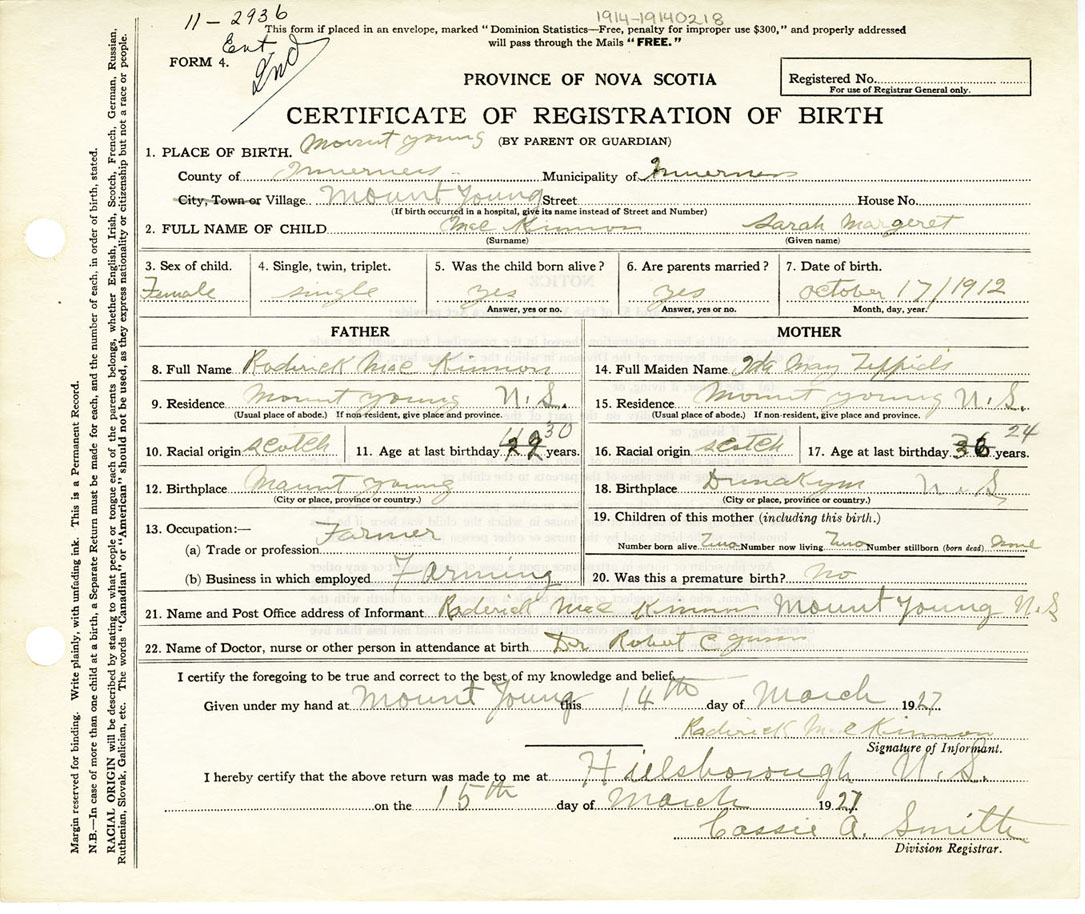 11-2936
1914-19140218
This form if placed in an envelope, marked "Dominion Statistics—Free, penalty for improper use $300," and properly addressed
will pass through the Mails "FREE."
Ent
2nd
FORM 4.
PROVINCE OF NOVA SCOTIA
Registered No.
For use of Registrar General only.
CERTIFICATE OF REGISTRATION OF BIRTH
(BY PARENT OR GUARDIAN)
1. PLACE OF BIRTH. Mount young
County of Inverness Municipality of Inverness
City, Town or Village Mount Young Street House No.
(If birth occurred in a hospital, give its name instead of Street and Number)
2. FULL NAME OF CHILD Mac Kinnon Sarah Margeret
(Surname) (Given name)
3. Sex of child. 4. Single, twin, triplet. 5. Was the child born alive? 6. Are parents married? 7. Date of birth.
Female single yes yes october 17/1912
Answer, yes or no. Answer, yes or no. Month, day, year.
FATHER MOTHER
8. Full Name Roderick Mac Kinnon 14. Full Maiden Name Ida May
9. Residence Mount young N.S. 15. Residence Mount young N.S.
(Usual place of abode.) If non-resident, give place and province. (Usual place of abode.) If non-resident, give place and province.
10. Racial origin scotch 11. Age at last birthday 30 years. 16. Racial origin scotch 17. Age at last birthday 36 24 years.
12. Birthplace Mount young 18. Birthplace N.S
(City or place, province or country.) (City or place, province or country.)
13. Occupation:— Farmer 19. Children of this mother (including this birth.)
(a) Trade or profession Number born alive Two Number now living Two Number stillborn (born dead)
(b) Business in which employed Farming 20. Was this a premature birth? No
21. Name and Post Office address of Informant Roderick Mac Kinnon Mount Young N.S
22. Name of Doctor, nurse or other person in attendance at birth Dr Robert C
I certify the foregoing to be true and correct to the best of my knowledge and belief.
Given under my hand at Mount Young this 14th day of March 1927
Roderick Mac Kinnon
Signature of Informant.
I hereby certify that the above return was made to me at Hillsborough N.S.
on the 15th day of March 1927
Cassie A. Smith
Division Registrar.
Margin reserved for binding. Write plainly, with unfading ink. This is a Permanent Record.
N.B.—In case of more than one child at a birth, a Separate Return must be made for each, and the number of each, in order of birth, stated.
RACIAL ORIGIN will be described by stating to what people or tongue each of the parents belongs, whether English, Irish, Scotch, French, German, Russian,
Ruthenian, Slovak, Galician, etc. The words "Canadian" or "American" should not be used, as they express nationality or citizenship but not a race or people.